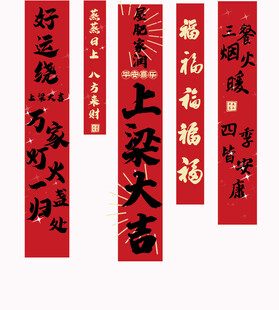 好运绕
上梁大吉
万家灯火
一盏归处
蒸蒸日上
八方来财
屋肥家润
平安喜乐
上梁大吉
福福福福福
三餐烟火暖
四季皆安康